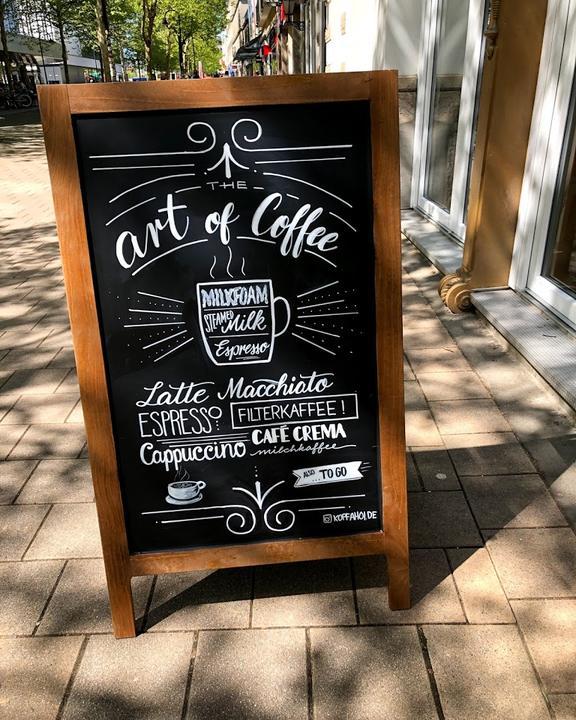 THE
art of Coffee
MILKFOAM
STEAMED Milk
Espresso
Latte Macchiato
ESPRESSO FILTERKAFFEE!
Cappuccino CAFÉ CREMA
milchkaffee
ALSO ... TO GO
KOPFAHOI.DE